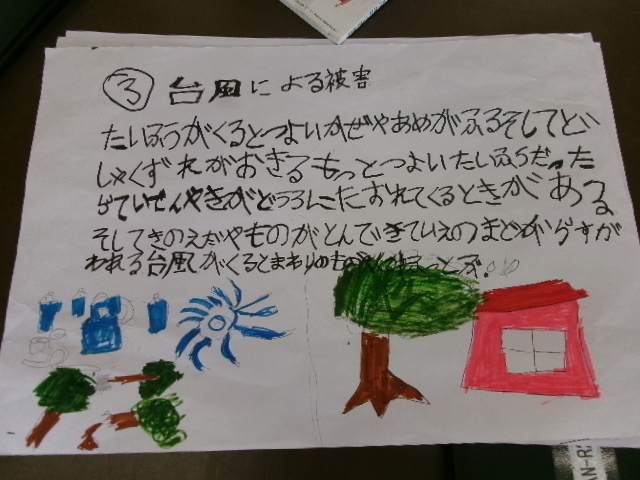 ③ 台風による被害
たいふうがくるとつよいかぜやあめがふるそしてどし
しゃくずれがおきるもっとつよいたいふうだった
らていぜんやきがどうろにたおれてくるときがある
そしてきのえだやものがとんできていえのまどがらすが
われる台風がくるとまわりのものが
AN-R